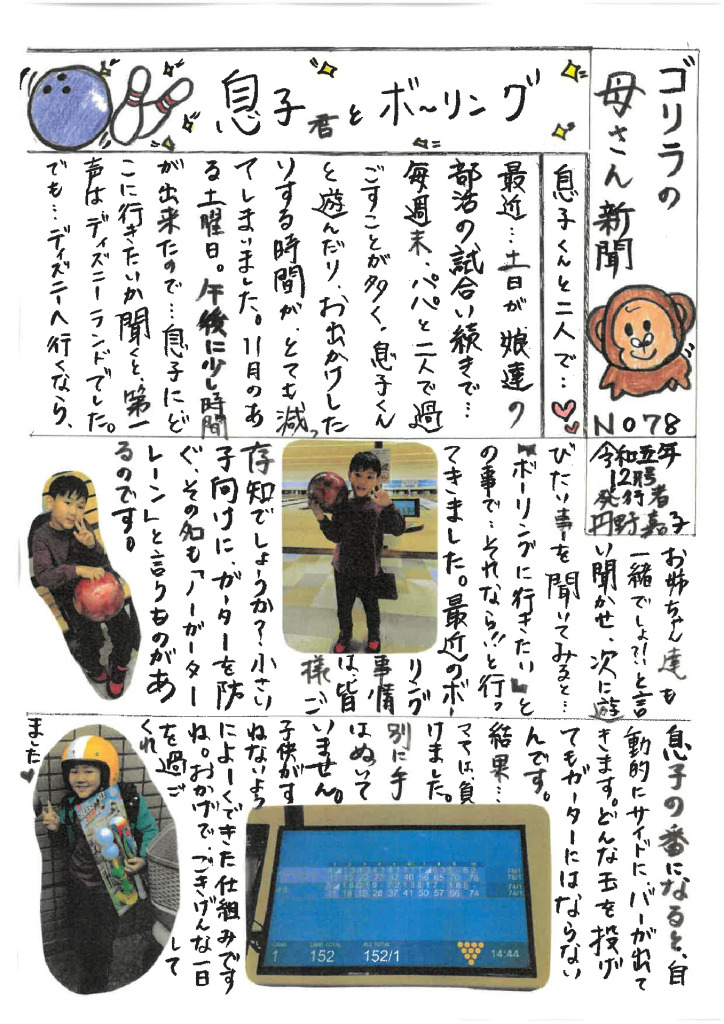 ゴリラの
母さん新聞
NO78
令和五年
12月号
発行者
円野嘉子
息子君とボ〜リング
息子くんと二人で…
最近…土日が娘達の
部活の試合い続きで…
毎週末、パパと二人で過
ごすことが多く。息子くん
と遊んだり、お出かけした
りする時間が、とても減っ
てしまいました。11月のあ
る土曜日。午後に少し時間
が出来たので…息子にど
こに行きたいか聞くと、第一
声はディズニーランドでした。
でも…ディズニーへ行くなら、
お姉ちゃん達も
一緒でしょ?!いと言
い聞かせ、次に遊
びたい事を聞いてみると…
『ボーリングに行きたい』と
の事で…それなら!!と行っ
てきました。最近のボー
リング
事情
は、皆
様ご
存知でしょうか?小さい
子向けに、ガーターを防
ぐ、その名も「ノーガーター
レーン」と言うものがあ
るのです。
息子の番になると、自
動的にサイドに、バーが出て
きます。どんな玉を投げ
てもガーターにはならない
んです。
結果…
ママは、負
けました。
別に手
はぬいて
いません。
子供がす
ねないよう
によーくできた仕組みです
ね。おかげで、ごきげんな一日
を過ご
して
くれ
ました
GAME
1
GAME TOTAL
152
ALL TOTAL
152/1
14:44